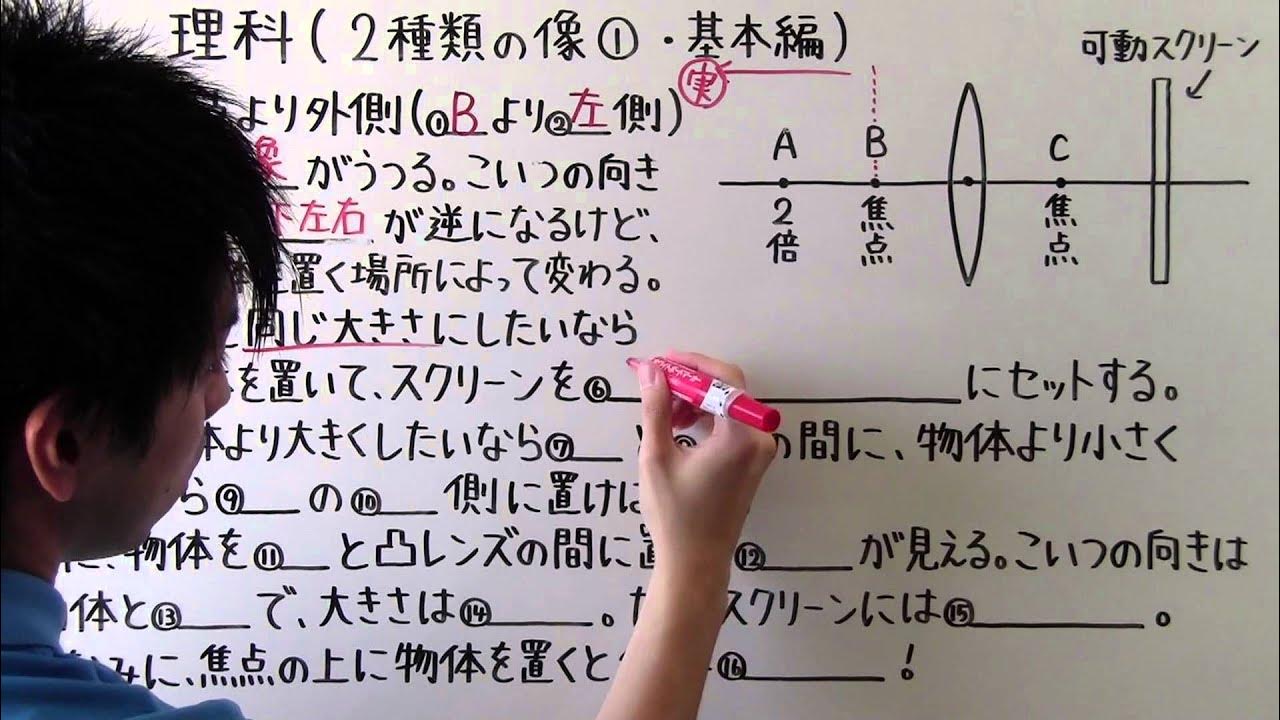 理科(2種類の像①・基本編)
可動スクリーン
実
より外側(①Bより②左側)
がうつる。こいつの向き
下左右が逆になるけど、
置く場所によって変わる。
同じ大きさにしたいなら
を置いて、スクリーンを⑥ にセットする。
体より大きくしたいなら⑦ の間に、物体より小さく
ら⑨ の⑩ 側に置けば
、物体を⑪ と凸レンズの間に置 ⑫ が見える。こいつの向きは
体と⑬ で、大きさは⑭ 。ただ スクリーンには⑮ 。
みに、焦点の上に物体を置くと ⑯ !
A
2倍
B
焦点
C
焦点